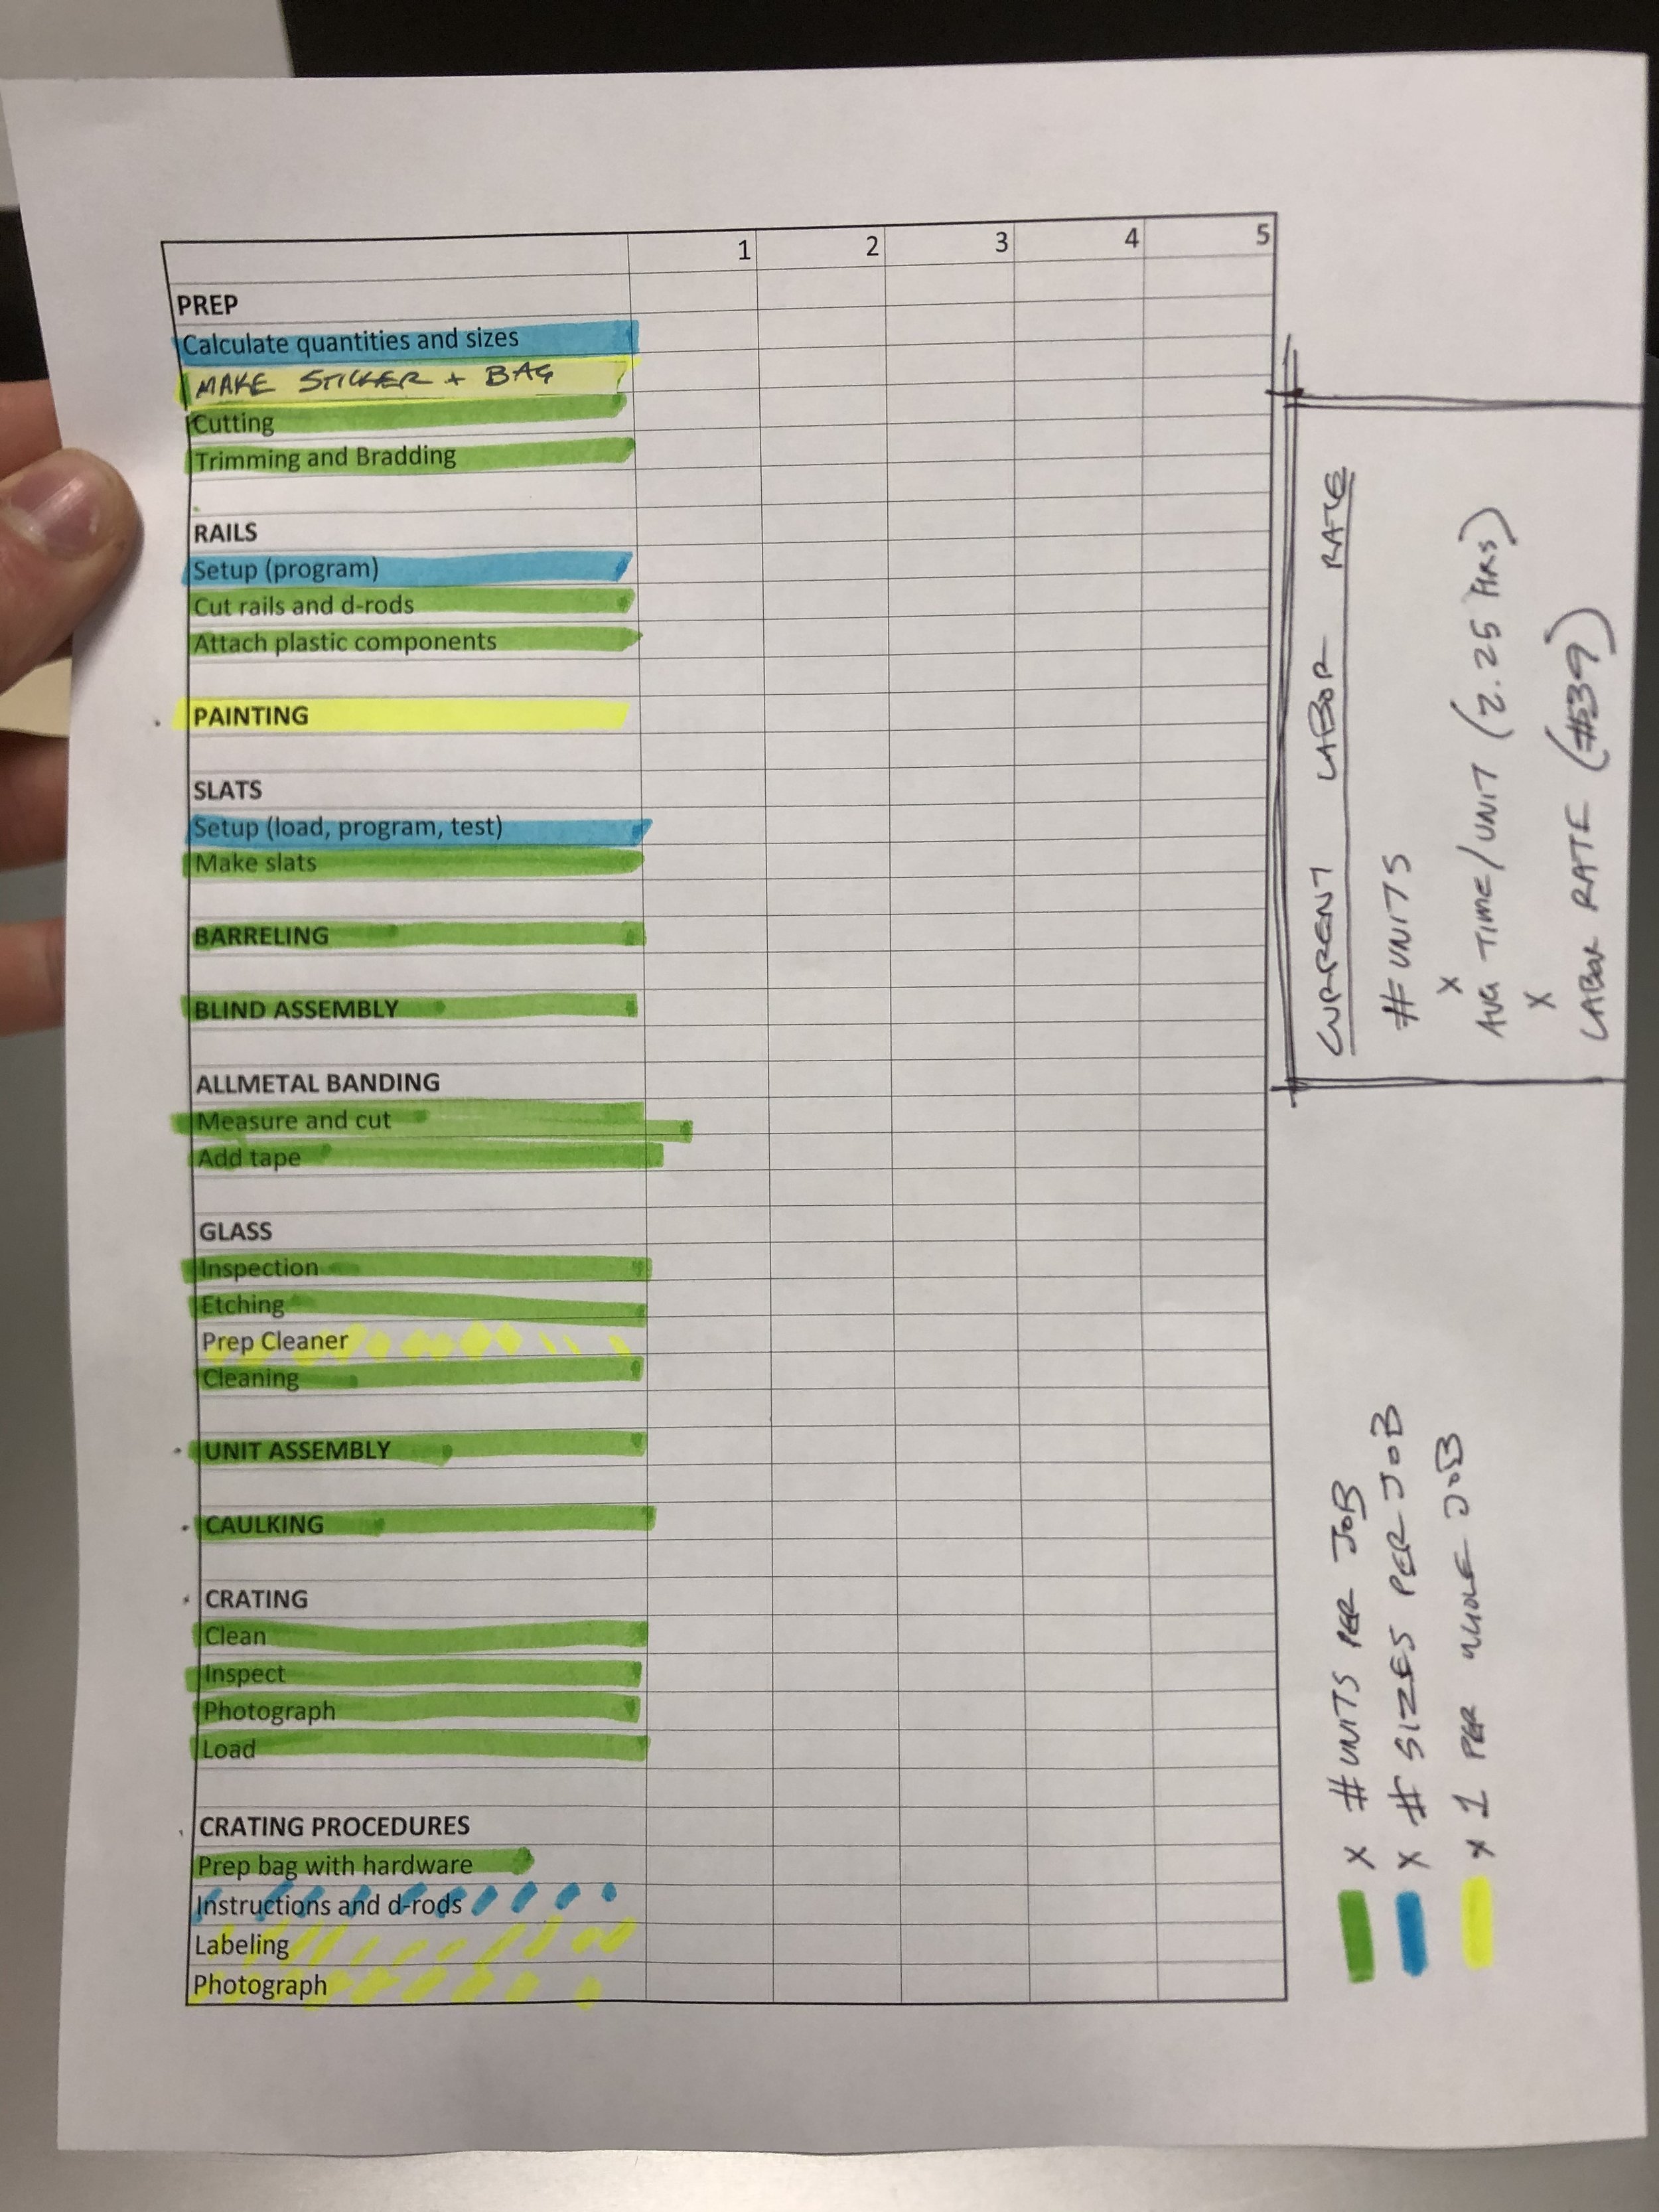 1 2 3 4 5
PREP
Calculate quantities and sizes
MAKE STICKER + BAG
Cutting
Trimming and Bradding
RAILS
Setup (program)
Cut rails and d-rods
Attach plastic components
PAINTING
SLATS
Setup (load, program, test)
Make slats
BARRELING
BLIND ASSEMBLY
ALLMETAL BANDING
Measure and cut
Add tape
GLASS
Inspection
Etching
Prep Cleaner
Cleaning
UNIT ASSEMBLY
CAULKING
CRATING
Clean
Inspect
Photograph
Load
CRATING PROCEDURES
Prep bag with hardware
Instructions and d-rods
Labeling
Photograph
CURRENT LABOR RATE
# UNITS
X
AVG TIME/UNIT (2.25 HRS)
X
LABOR RATE ($39)
X # UNITS PER JOB
X # SIZES PER JOB
X 1 PER WHOLE JOB